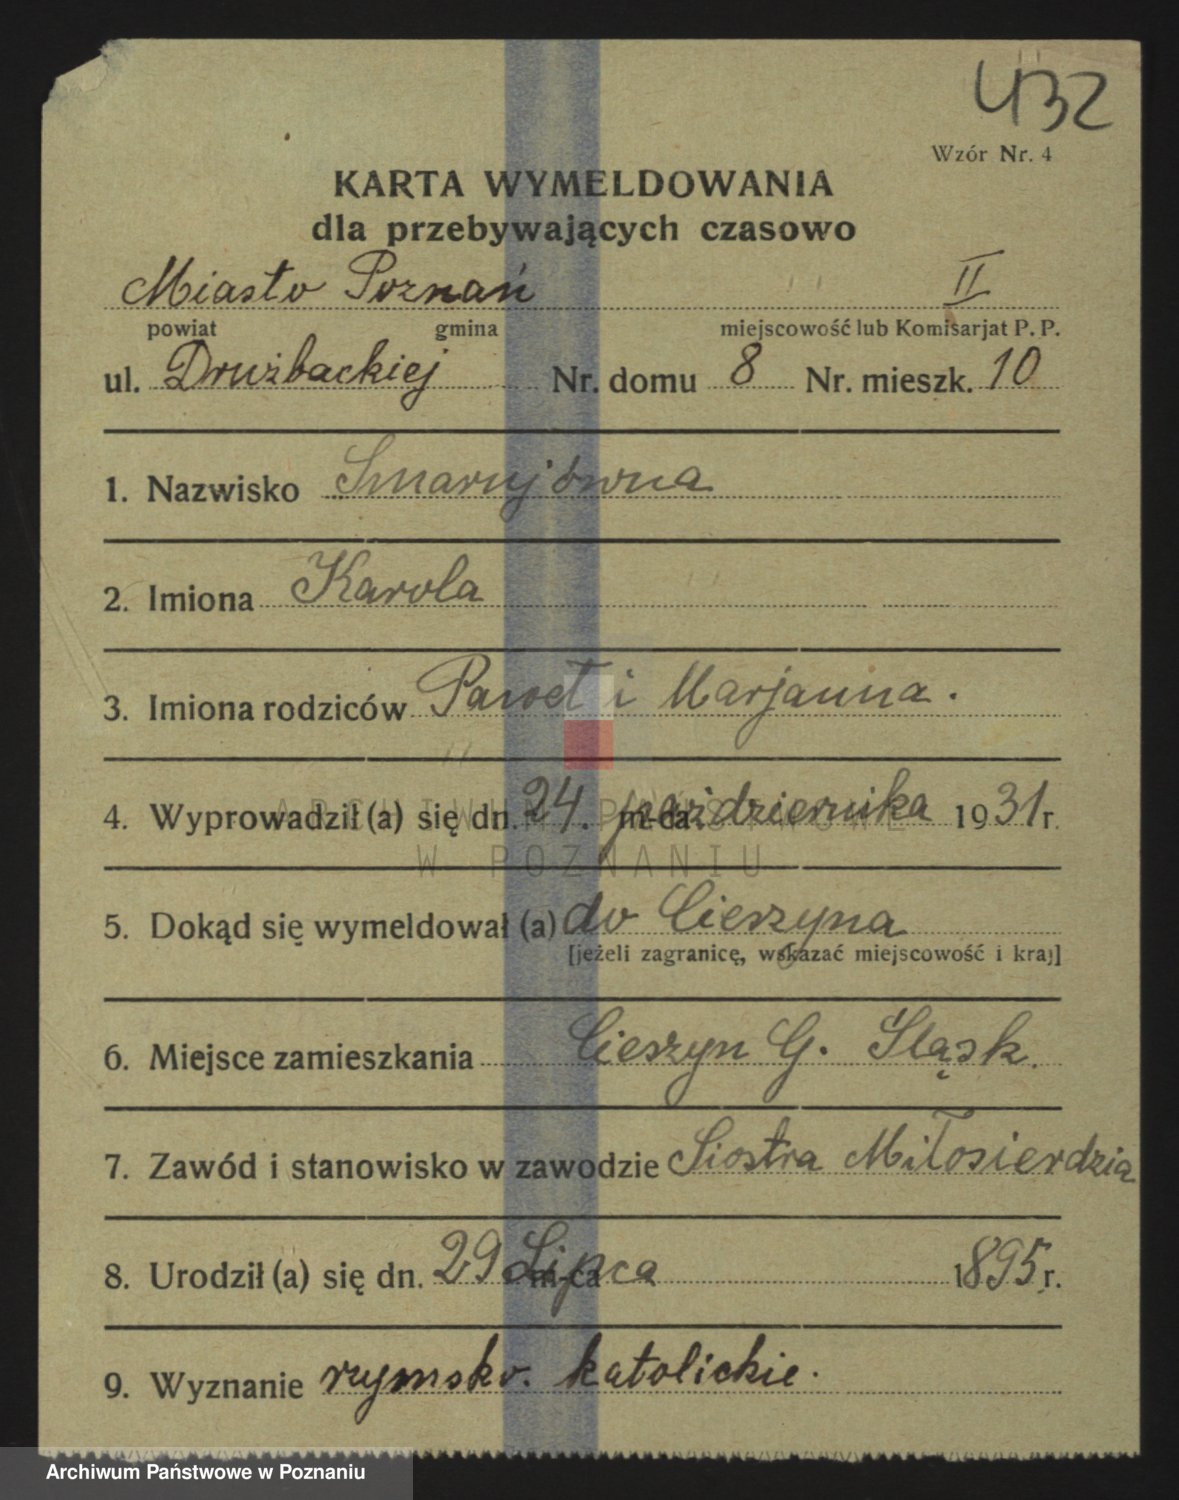 432
Wzór Nr. 4
KARTA WYMELDOWANIA
dla przebywających czasowo
Miasto Poznań II
powiat gmina miejscowość lub Komisarjat P. P.
ul. Drużbackiej Nr. domu 8 Nr. mieszk. 10
1. Nazwisko
2. Imiona Karola
3. Imiona rodziców Paweł i Marjanna.
4. Wyprowadził (a) się dn. 24. m-ca października 1931 r.
5. Dokąd się wymeldował (a) do Cieszyna
[jeżeli zagranicę, wskazać miejscowość i kraj]
6. Miejsce zamieszkania Cieszyn G. Śląsk.
7. Zawód i stanowisko w zawodzie Siostra Miłosierdzia
8. Urodził (a) się dn. 29 m-ca Lipca 1895 r.
9. Wyznanie rzymsko. katolickie.
ARCHIWUM PAŃSTWOWE
W POZNANIU
Archiwum Państwowe w Poznaniu